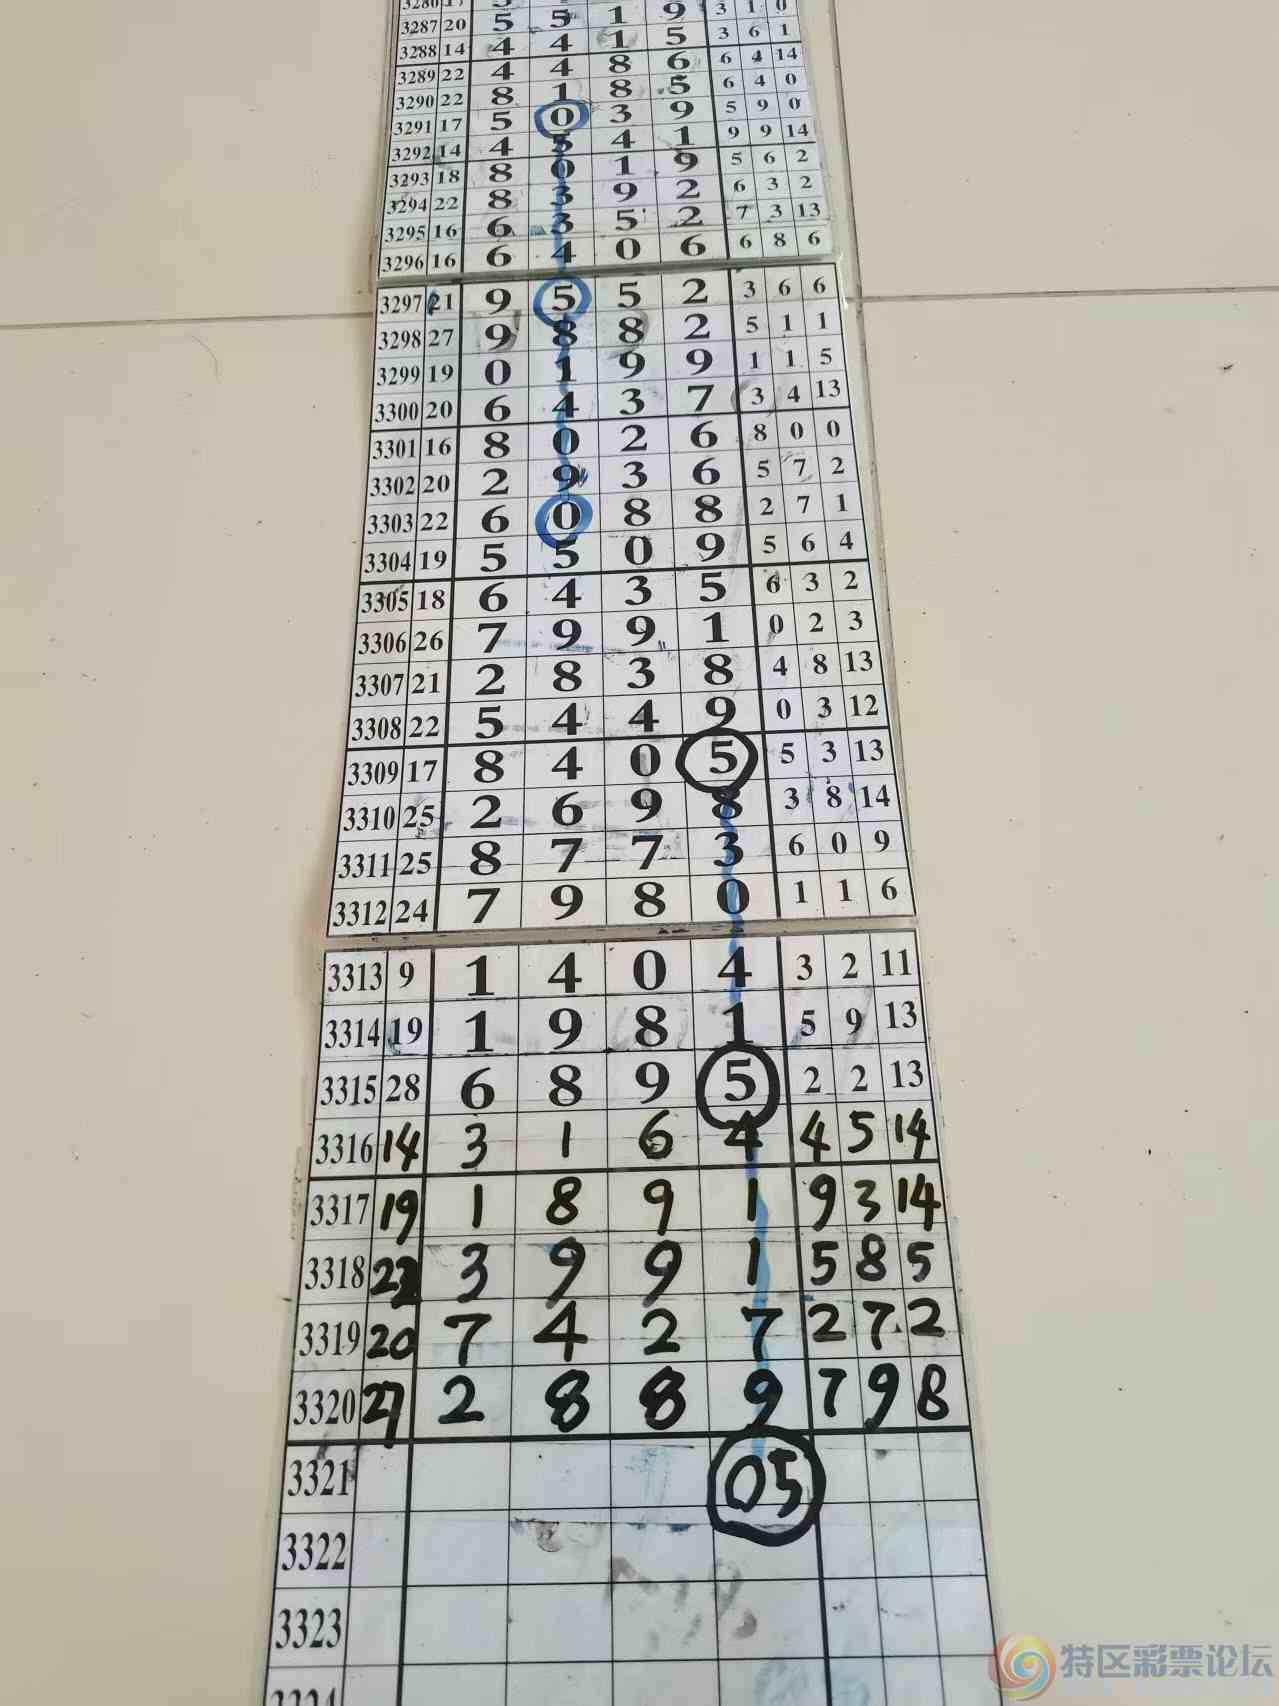 3287 20 5 5 1 9 3 1 0
3288 14 4 4 1 5 3 6 1
3289 22 4 4 8 6 6 4 14
3290 22 8 1 8 5 6 4 0
3291 17 5 0 3 9 5 9 0
3292 14 4 5 4 1 9 9 14
3293 18 8 0 1 9 5 6 2
3294 22 8 3 9 2 6 3 2
3295 16 6 3 5 2 7 3 13
3296 16 6 4 0 6 6 8 6
3297 21 9 5 5 2 3 6 6
3298 27 9 8 8 2 5 1 1
3299 19 0 1 9 9 1 1 5
3300 20 6 4 3 7 3 4 13
3301 16 8 0 2 6 8 0 0
3302 20 2 9 3 6 5 7 2
3303 22 6 0 8 8 2 7 1
3304 19 5 5 0 9 5 6 4
3305 18 6 4 3 5 6 3 2
3306 26 7 9 9 1 0 2 3
3307 21 2 8 3 8 4 8 13
3308 22 5 4 4 9 0 3 12
3309 17 8 4 0 5 5 3 13
3310 25 2 6 9 8 3 8 14
3311 25 8 7 7 3 6 0 9
3312 24 7 9 8 0 1 1 6
3313 9 1 4 0 4 3 2 11
3314 19 1 9 8 1 5 9 13
3315 28 6 8 9 5 2 2 13
3316 14 3 1 6 4 4 5 14
3317 19 1 8 9 1 9 3 14
3318 22 3 9 9 1 5 8 5
3319 20 7 4 2 7 2 7 2
3320 27 2 8 8 9 7 9 8
3321 05
3322
3323
特区彩票论坛